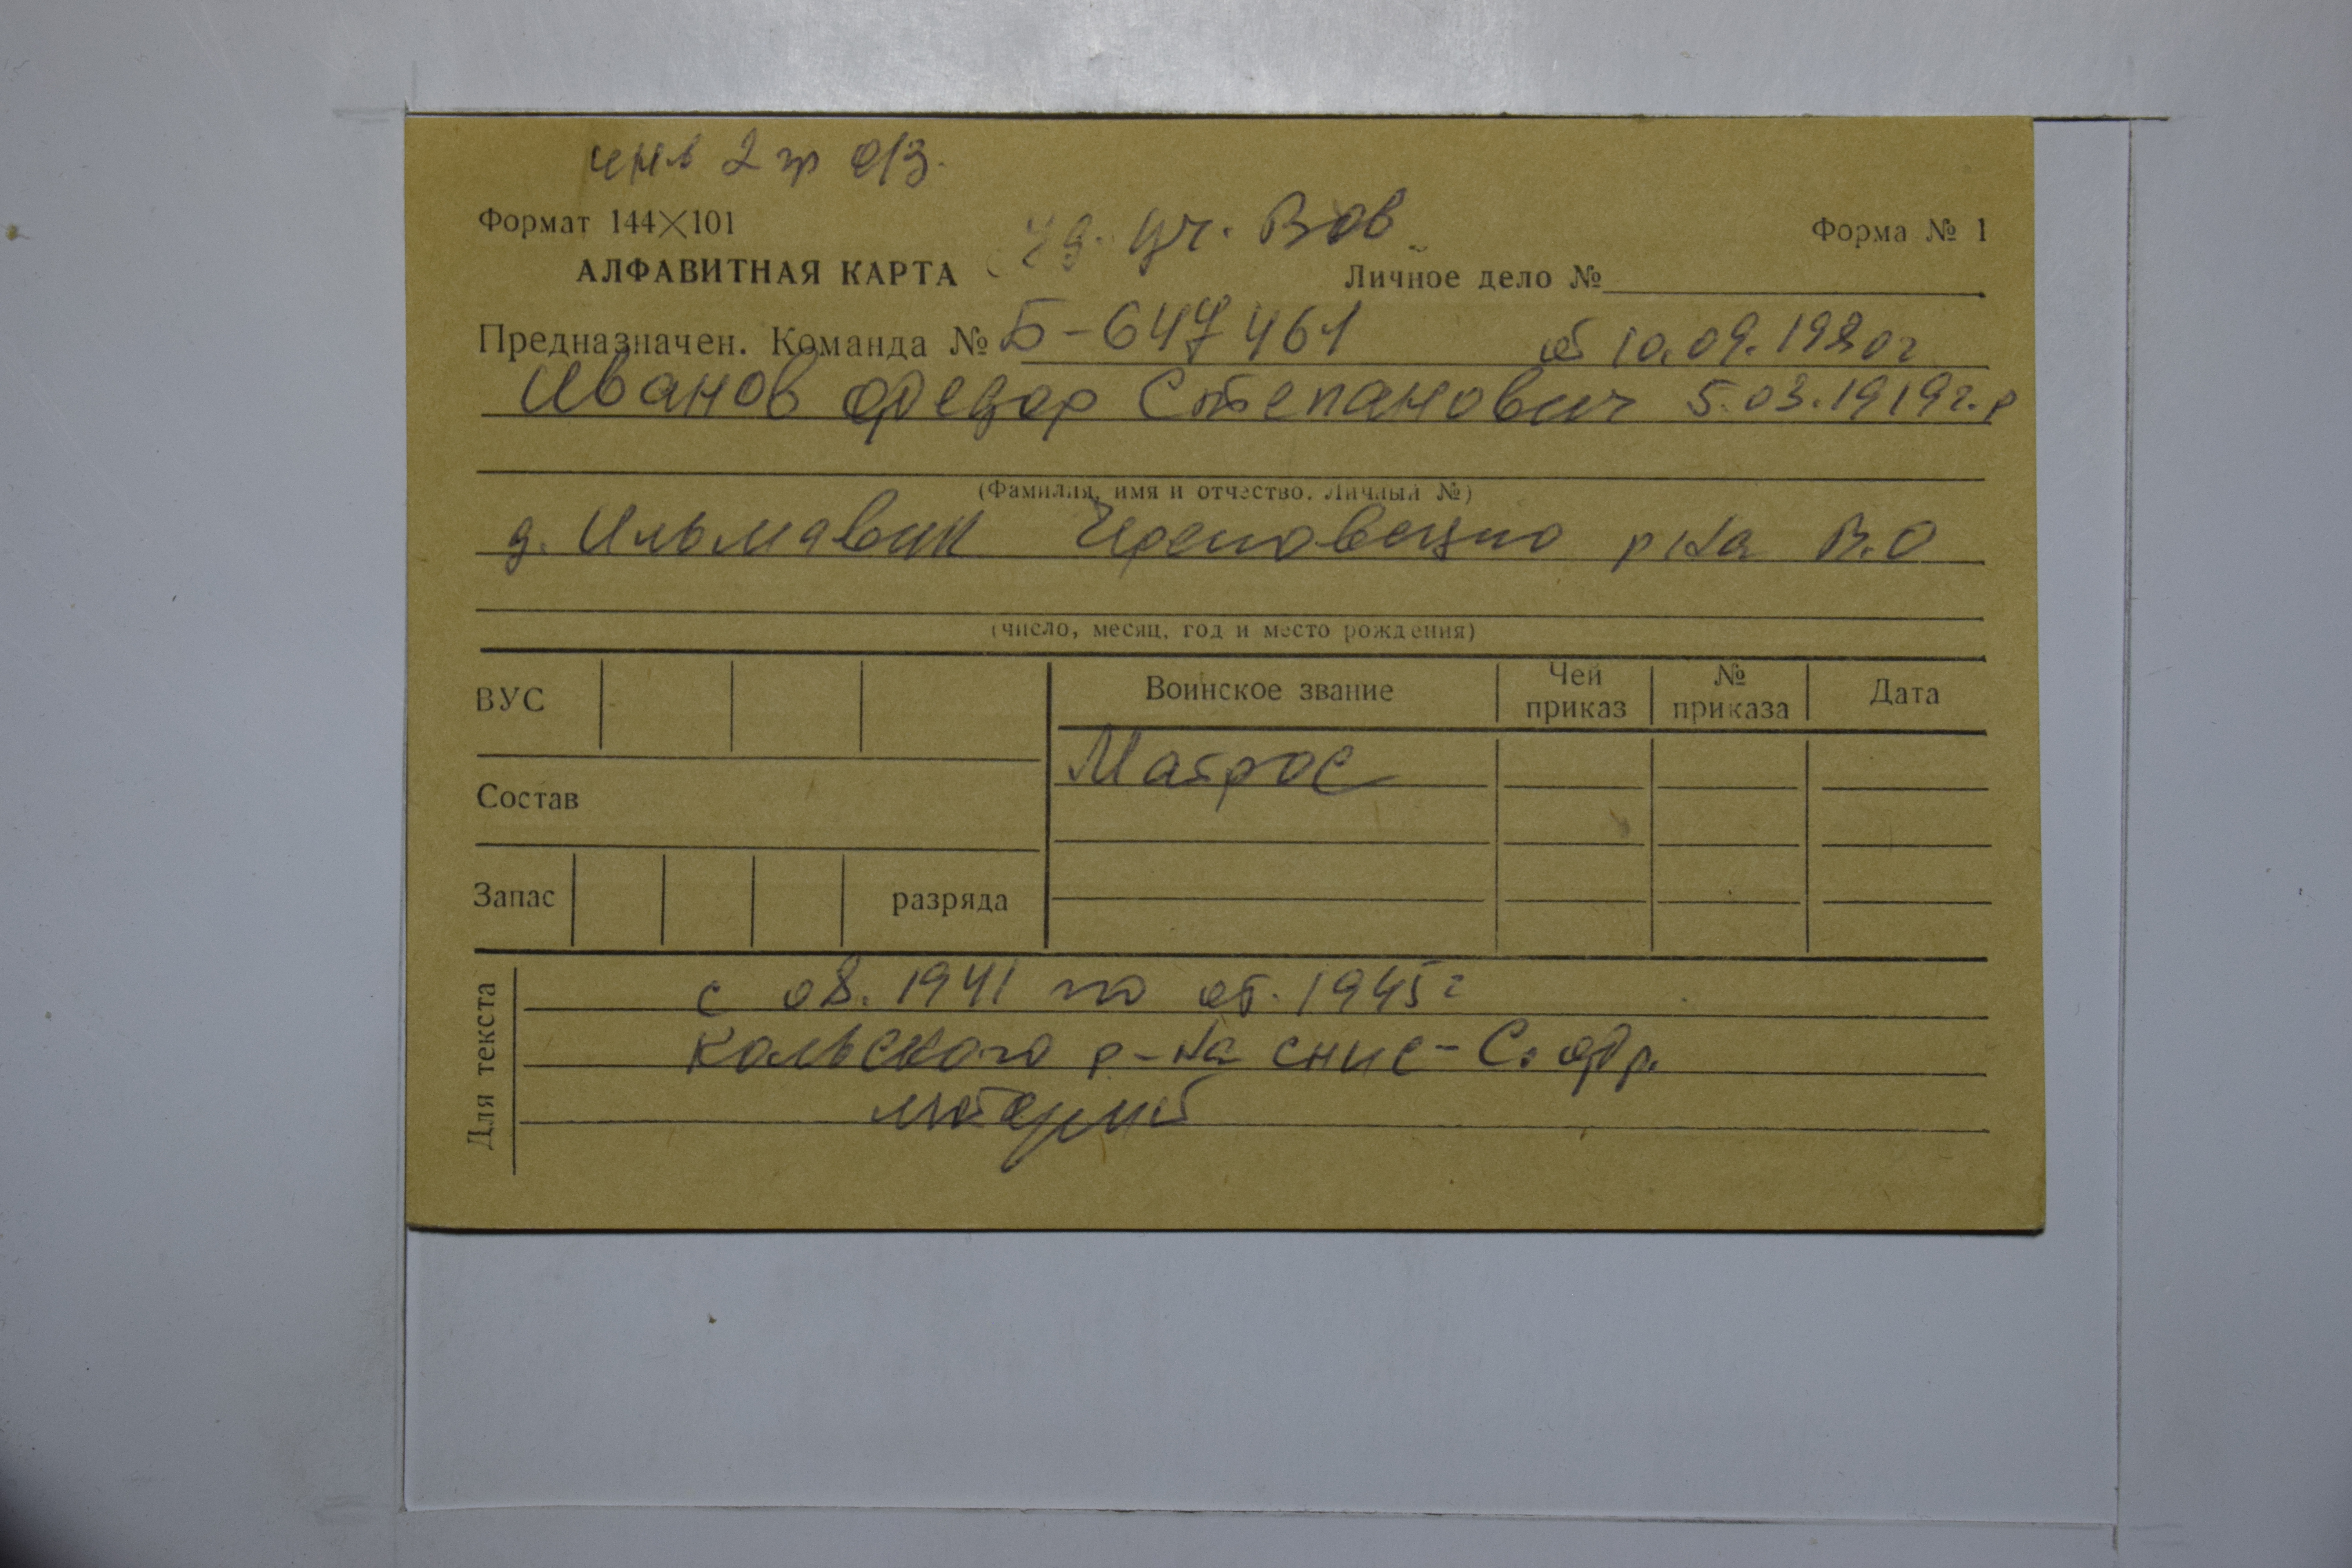 инв 2 гр о/з.
Формат 144×101
уд. уч. Вов
Форма № 1
АЛФАВИТНАЯ КАРТА
Личное дело №
Предназначен. Команда № Б-647461 от 10.09.1980г
Иванов Федор Степанович 5.03.1919г.р
(Фамилия, имя и отчество. Личный №)
д. Череповецкого р на В.О
(число, месяц, год и место рождения)
ВУС
Воинское звание
Чей приказ
№ приказа
Дата
Матрос
Состав
Запас
разряда
Для текста
с 08.1941 по 1945г
Кольского р-на СНИС - С.